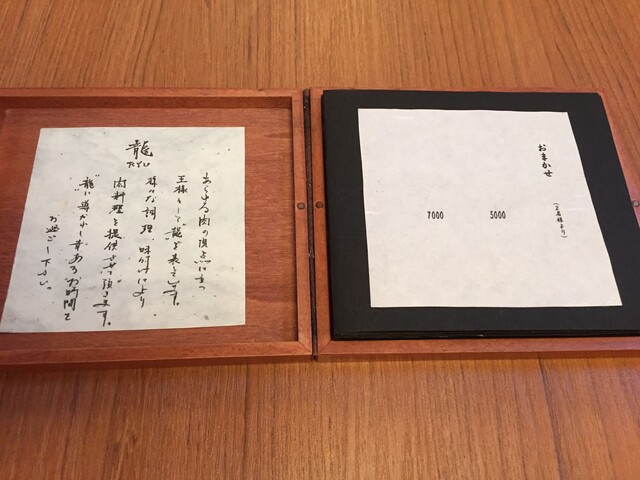 龍
あらゆる肉の頂点に立つ
王様として"龍"を表しています。
様々な調理、味付けにより
肉料理を提供させて頂きます。
"龍"に導かれし幸あるお時間を
お過ごし下さい。
おまかせ
(2名様より)
5000
7000